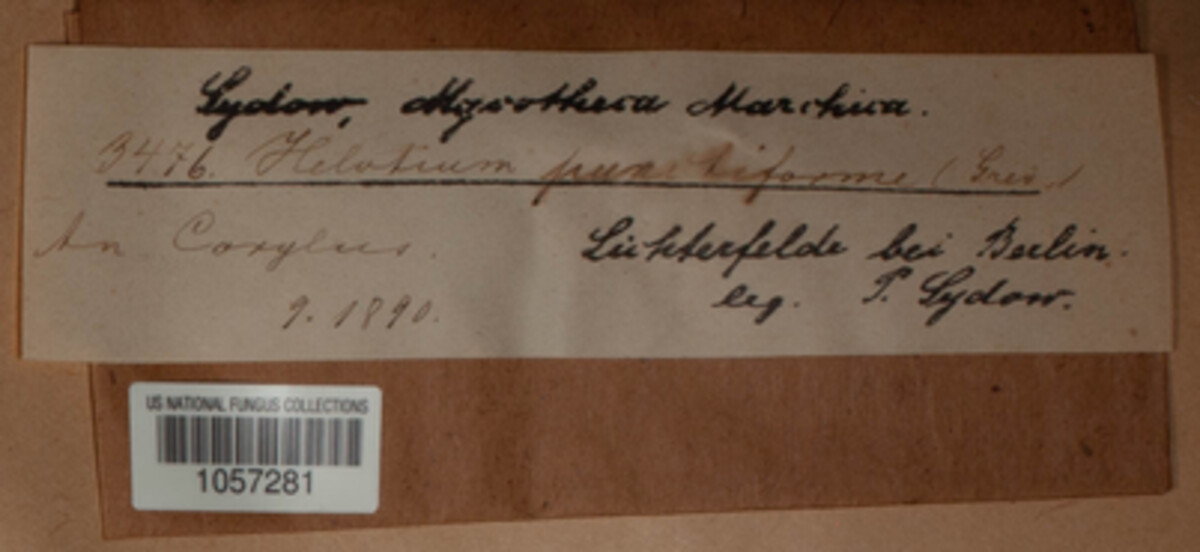 Sydow, Mycotheca Marchica.
3476. Helotium punctiforme (Grev.)
An Corylus.
Lichterfelde bei Berlin.
9. 1890.
leg. P. Sydow.
US NATIONAL FUNGUS COLLECTIONS
1057281